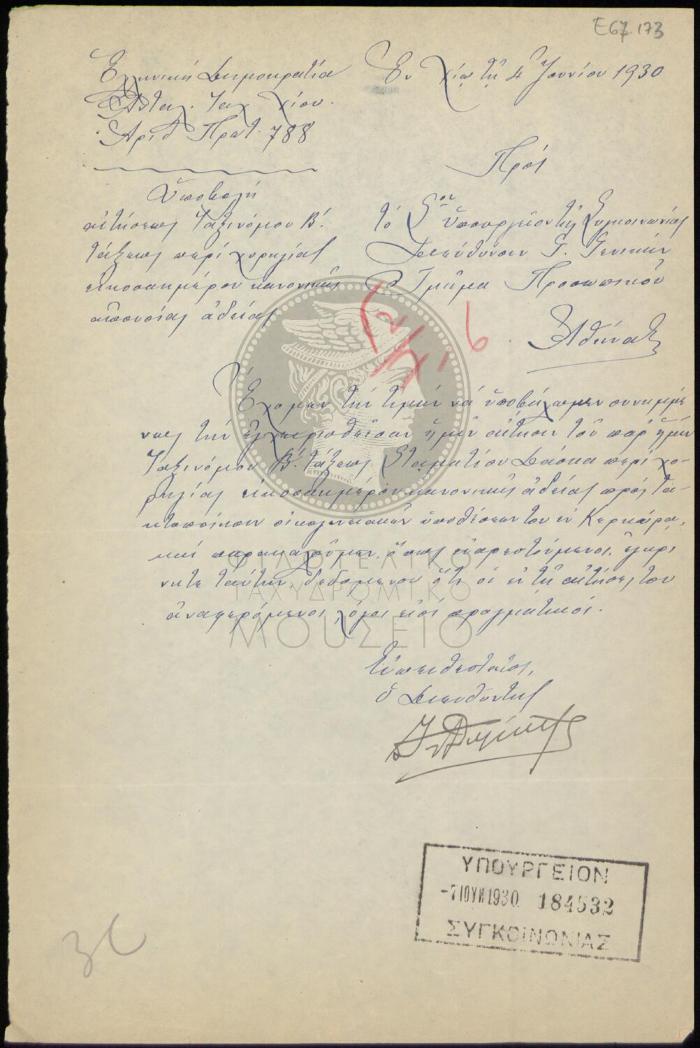 E67.173
Ἑλληνικὴ Δημοκρατία
Ἐν Χίῳ τῇ 4 Ἰουνίου 1930
Ταχ. Χίου.
Ἀριθ. Πρωτ. 788
Πρὸς
Ὑποβολὴ
αἰτήσεως Ταξινόμου Β΄.
τάξεως περὶ χορηγίας
εἰκοσαημέρου κανονικῆς
ἀπουσίας ἀδείας
τὸ Σὸν Ὑπουργεῖον τῆς Συγκοινωνίας
Διεύθυνσιν Γ. Γενικὴν
Τμῆμα Προσωπικοῦ
Ἀθήνας
Ἔχομεν τὴν τιμὴν νὰ ὑποβάλωμεν συνημμέ
νως τὴν ἐγχειρισθεῖσαν ἡμῖν αἴτησιν τοῦ παρ' ἡμῖν
Ταξινόμου Β΄. τάξεως Σταματίου περὶ χο
ρηγίας εἰκοσαημέρου κανονικῆς ἀδείας πρὸς τα
κτοποίησιν οἰκογενειακῶν ὑποθέσεών του ἐν Κερκύρᾳ,
καὶ παρακαλοῦμεν, ὅπως εὐαρεστούμενοι, ἐγκρί
νητε ταύτην, δεδομένου ὅτι οἱ ἐν τῇ αἰτήσει του
ἀναφερόμενοι λόγοι εἰσὶ πραγματικοί.
Εὐπειθέστατος,
ὁ Διευθυντὴς
ΥΠΟΥΡΓΕΙΟΝ
-7 ΙΟΥΝ 1930 184532
ΣΥΓΚΟΙΝΩΝΙΑΣ
ΦΙΛΟΤΕΛΙΚΟ
ΤΑΧΥΔΡΟΜΙΚΟ
ΜΟΥΣΕΙΟ